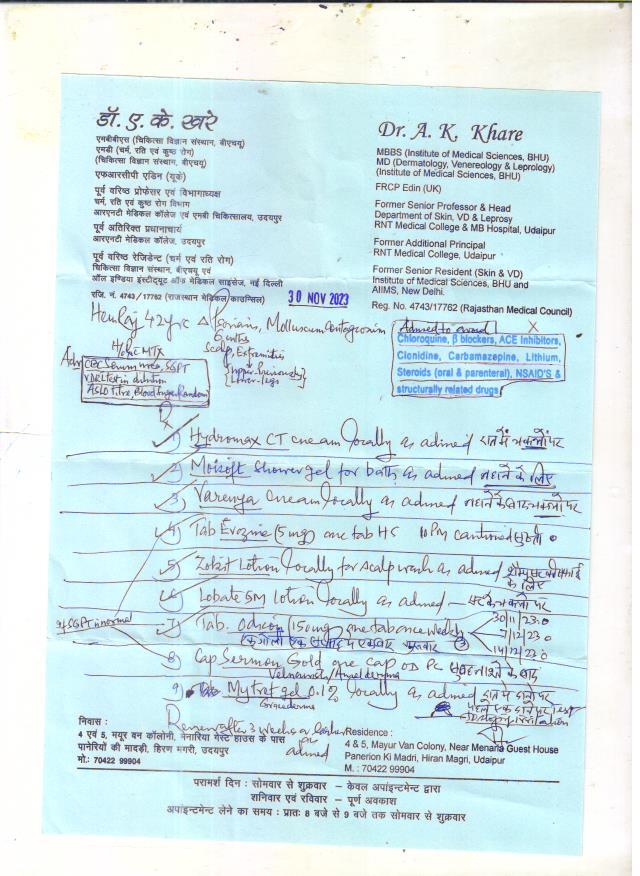 डॉ. ए. के. खरे
एमबीबीएस (चिकित्सा विज्ञान संस्थान, बीएचयू)
एमडी (चर्म, रति एवं कुष्ठ रोग)
(चिकित्सा विज्ञान संस्थान, बीएचयू)
एफआरसीपी एडिन (यूके)
पूर्व वरिष्ठ प्रोफेसर एवं विभागाध्यक्ष
चर्म, रति एवं कुष्ठ रोग विभाग
आरएनटी मेडिकल कॉलेज एवं एमबी चिकित्सालय, उदयपुर
पूर्व अतिरिक्त प्रधानाचार्य
आरएनटी मेडिकल कॉलेज, उदयपुर
पूर्व वरिष्ठ रेजिडेन्ट (चर्म एवं रति रोग)
चिकित्सा विज्ञान संस्थान, बीएचयू एवं
ऑल इण्डिया इंस्टीट्यूट ऑफ मेडिकल साइसेज, नई दिल्ली
रजि. नं. 4743/17762 (राजस्थान मेडिकल काउन्सिल)
Dr. A. K. Khare
MBBS (Institute of Medical Sciences, BHU)
MD (Dermatology, Venereology & Leprology)
(Institute of Medical Sciences, BHU)
FRCP Edin (UK)
Former Senior Professor & Head
Department of Skin, VD & Leprosy
RNT Medical College & MB Hospital, Udaipur
Former Additional Principal
RNT Medical College, Udaipur
Former Senior Resident (Skin & VD)
Institute of Medical Sciences, BHU and
AIIMS, New Delhi.
Reg. No. 4743/17762 (Rajasthan Medical Council)
30 NOV 2023
Hemraj 42yrs Δ Psoriasis, Molluscum Contagiosum
Scalp, Extremities
H/o MTX
Adv CBC Serum urea, SGPT
VDRL test in dilution
ASLO Titre, Blood Sugar Random
Advised to avoid
Chloroquine, β blockers, ACE Inhibitors,
Clonidine, Carbamazepine, Lithium,
Steroids (oral & parenteral), NSAID'S &
structurally related drugs
Rx
1) Hydromax CT cream locally as advised रात में
2) Moisoft Shower gel for bath as advised नहाने के लिए
3) Varenya cream locally as advised नहाने के बाद
4) Tab Evozine (5mg) one tab HS 10PM
5) Zobit Lotion locally for scalp wash as advised के लिए
6) Lobate SM lotion locally as advised
30/11/23
If SGPT is normal
7) Tab. (15mg) one tab once weekly
7/12/23
14/12/23
8) Cap Sermon Gold one cap OD PC
9) Mytret gel 0.1% locally as advised
Review after 3 weeks or earlier
as advised
निवास :
4 एवं 5, मयूर वन कॉलोनी, मेनारिया गेस्ट हाउस के पास
पानेरियों की मादड़ी, हिरण मगरी, उदयपुर
मो.: 70422 99904
Residence :
4 & 5, Mayur Van Colony, Near Menaria Guest House
Panerion Ki Madri, Hiran Magri, Udaipur
M. : 70422 99904
परामर्श दिन : सोमवार से शुक्रवार – केवल अपांइन्टमेन्ट द्वारा
शनिवार एवं रविवार – पूर्ण अवकाश
अपांइन्टमेन्ट लेने का समय : प्रातः 8 बजे से 9 बजे तक सोमवार से शुक्रवार